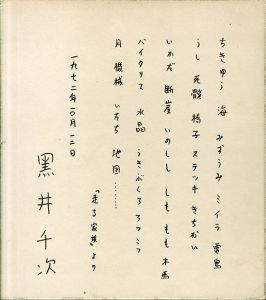 ちきゅう 海 みずうみ ミイラ 雷鳥
うし 死骸 梯子 ステッキ きちがい
いかだ 断崖 いのしし しし もも 木馬
バイタリス 水晶 うきぶくろ
月 機械 いたち 地図………
「走る家族」より
一九七二年一〇月一二日
黒井千次